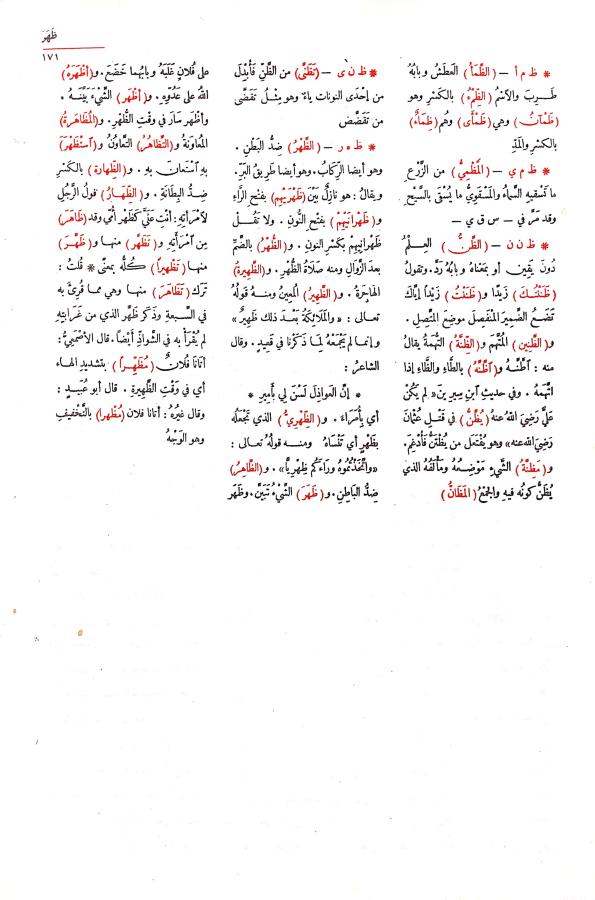 ظَهَرَ
١٧١
* ظ م أ — (الظَّمَأُ) العَطَشُ وبابُهُ
طَرِبَ والاسْمُ (الظِّمْءُ) بالكَسْرِ وهو
(ظَمْآنُ) وهي (ظَمْأَى) وهُم (ظِمَاءٌ)
بالكسْرِ والمَدِّ
* ظ م ي — (المَظْمِيُّ) من الزَّرْعِ
ما تَسْقِيهِ السَّماءُ والمَسْقَوِيُّ ما يُسْقَى بالسَّيْحِ
وقد مَرَّ في — س ق ي —
* ظ ن ن — (الظَّنُّ) العِلْمُ
دُونَ يَقِينٍ أو بمَعْناهُ وبابُهُ رَدَّ. وتقولُ
(ظَنَنْتُكَ) زَيْدًا و (ظَنَنْتُ) زَيْدًا إيَّاكَ
تَضَعُ الضَّمِيرَ المُنْفَصِلَ موضِعَ المُتَّصِلِ .
و (الظَّنِينُ) المُتَّهَمُ و (الظِّنَّةُ) التُّهَمَةُ يقالُ
منه : اَظَّنَّهُ و (اَطَّنَّهُ) بالطَّاءِ والظَّاءِ إذا
اتَّهَمَهُ . وفي حديثِ ابْنِ سِيرِينَ« لم يَكُنْ
عَلِيٌّ رَضِيَ اللهُ عنهُ (يُظَّنُّ) في قَتْلِ عُثْمَانَ
رَضِيَ اللهُ عنه» وهو يُفْتَعَلُ من يُظْتَنُّ فأُدْغِمَ.
و (مَظِنَّةُ) الشَّيءِ مَوْضِعُهُ ومَأْلَفُهُ الذي
يُظَنُّ كونُه فيهِ والجمْعُ (المَظَانُّ)
* ظ ن ى — (تَظَنَّى) من الظَّنِّ فَأُبْدِلَ
من إحْدَى النوناتِ ياءٌ وهو مِثْلُ تَقَضَّى
من تَقَضَّضَ
* ظ ه ر — (الظَّهْرُ) ضِدُّ البَطْنِ .
وهو أيضا الرِّكَابُ. وهو أيضا طَرِيقُ البَرِّ.
ويقالُ : هو نازِلٌ بَيْنَ (ظَهْرَيْهِم) بفَتْحِ الرَّاءِ
و (ظَهْرَانَيْهِمْ) بفتْحِ النُّونِ . ولا تَقُــلْ
ظَهْرانِيهِمْ بكَسْرِ النونِ . و (الظُّهْرُ) بالضَّمِّ
بعدَ الزَّوَالِ ومنه صَلَاةُ الظُّهْرِ . و(الظَّهِيرَةُ)
الهاجِرَةُ . و (الظَّهِيرُ) المُعِينُ ومنـهُ قولُهُ
تعالى : «والملَائِكَةُ بَعْدَ ذلك ظَهِيرٌ»
وإنما لم يَجْمَعْهُ لِمَا ذَكَرْنا في قَعِيدٍ . وقال
الشاعرُ :
* إنَّ العَوَاذِلَ لَسْنَ لي بأَمِيرِ *
أي بأُمَرَاءَ . و (الظِّهْرِيُّ) الذي تَجْعَلُهُ
بظَهْرٍ أي تَنْسَاهُ ومنه قولُهُ تعالى :
«واتَّخَذْتُمُوهُ وَرَاءَكُم ظِهْرِيًّا» . و (الظَّاهِرُ)
ضِدُّ البَاطِنِ . و (ظَهَرَ) الشَّيْءُ تَبَيَّنَ . وظَهَر
على فُلانٍ غَلَبَهُ وبابُهُما خَضَعَ . و (أَظْهَرَهُ)
اللهُ على عَدُوِّهِ . و (أَظْهَرَ) الشَّيْءَ بَيَّنَـهُ .
وأَظْهَرَ سارَ في وقتِ الظُّهْرِ . و (المُظَاهَرَةُ)
المُعَاوَنَةُ و (التَّظَاهُرُ) التَّعَاوُنُ و (اسْتَظْهَرَ)
بِهِ اسْتَعَانَ بِهِ . و (الظِّهارة) بالكَسْرِ
ضِدُّ البِطَانَةِ . و (الظِّهَارُ) قَولُ الرَّجُلِ
لامْرَأَتِهِ: أنتِ عَلَيَّ كظَهْرِ أُمِّي وقد (ظَاهَرَ)
مِنِ امْرَأَتِهِ و (تَظَهَّرَ) منها و (ظَهَّـرَ)
منها (تَظْهِيرًا) كُلُّه بمعنًى * قلتُ :
تَرَكَ (تَظَاهَرَ) منها وهي مما قُرِئَ به
في السَّبعةِ وذَكَر ظَهَّرَ الذي من غَرَابَتِهِ
لم يُقْرَأْ به في الشَّواذِّ أيْضًا. قالَ الأصْمَعِيُّ :
أتانَا فُلانٌ (مُظَهِّرًا) بتشديدِ الهاء
أي في وَقْتِ الظَّهِيرَةِ . قال أبو عُبَيدٍ :
وقال غَيْرُهُ : أتانا فلانٌ (مُظْهِرًا) بالتَّخْفِيفِ
وهو الوَجْهُ